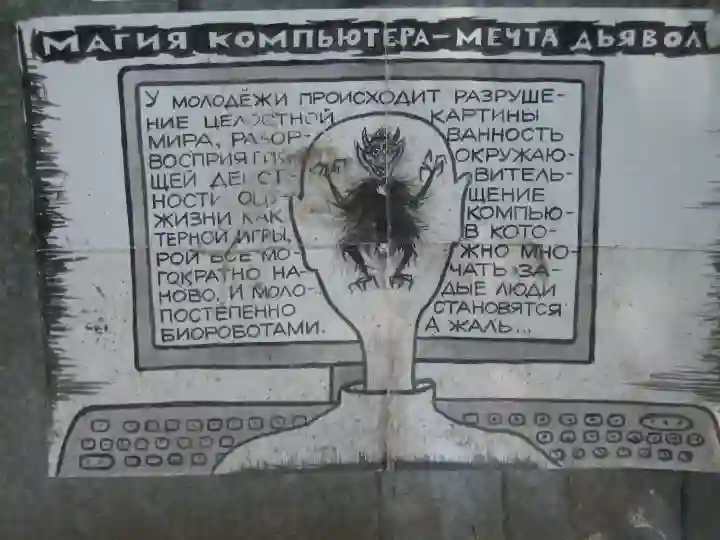 МАГИЯ КОМПЬЮТЕРА-МЕЧТА ДЬЯВОЛ
У МОЛОДЁЖИ ПРОИСХОДИТ РАЗРУШЕ-
НИЕ ЦЕЛОСТНОЙ КАРТИНЫ
МИРА, РАЗОР- ВАННОСТЬ
ВОСПРИЯТИЯ ОКРУЖАЮ-
ЩЕЙ ДЕЙСТ- ВИТЕЛЬ-
НОСТИ ОЩУ- ЩЕНИЕ
ЖИЗНИ КАК КОМПЬЮ-
ТЕРНОЙ ИГРЫ, В КОТО-
РОЙ ВСЁ МО- ЖНО МНО-
ГОКРАТНО НА- ЧАТЬ ЗА-
НОВО. И МОЛО- ДЫЕ ЛЮДИ
ПОСТЕПЕННО СТАНОВЯТСЯ
БИОРОБОТАМИ. А ЖАЛЬ...